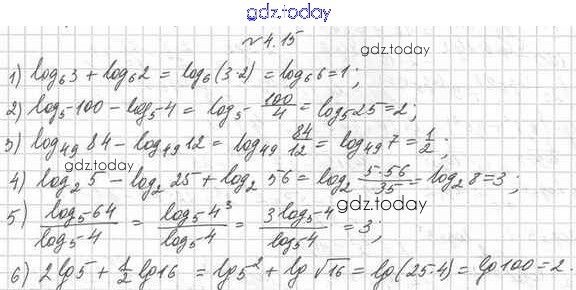 gdz.today
№4.15
gdz.today
1) log₆3 + log₆2 = log₆(3·2) = log₆6 = 1;
2) log₅-100 - log₅-4 = log₅- 100/4 = log₅25 = 2;
3) log₄₉84 - log₄₉12 = log₄₉ 84/12 = log₄₉7 = 1/2;
gdz.today
4) log₂5 - log₂25 + log₂56 = log₂ 5·56/35 = log₂8 = 3;
5) log₅-64/log₅-4 = log₅4³/log₅-4 = 3log₅-4/log₅4 = 3;
gdz.today
6) 2lg5 + 1/2 lg16 = lg5² + lg√16 = lg(25·4) = lg100 = 2.